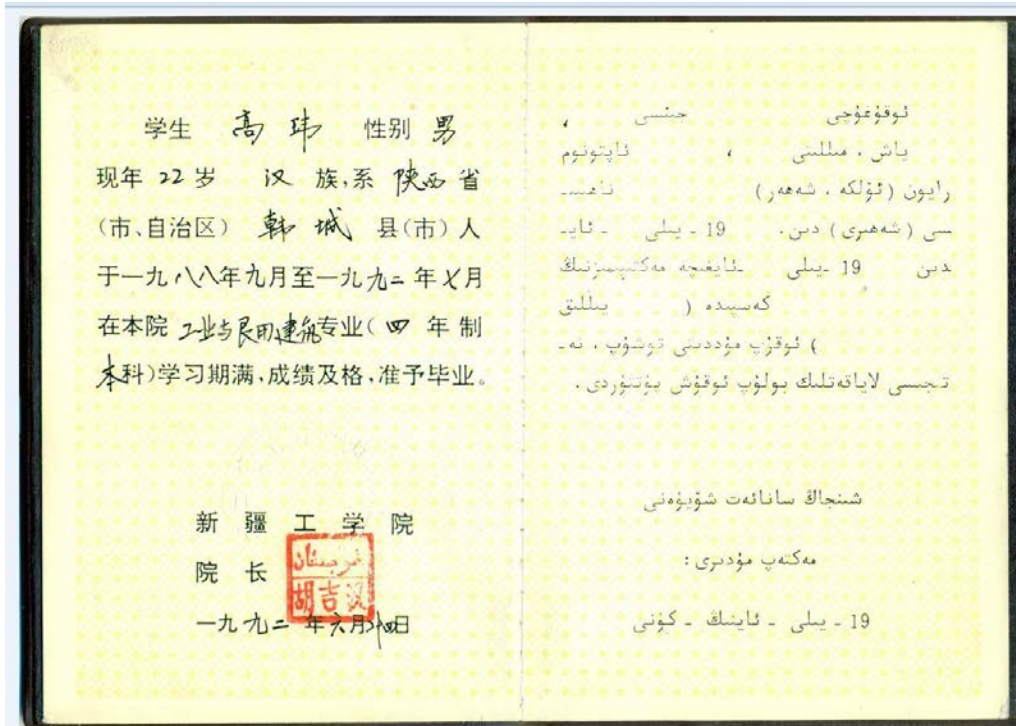 学生 高玮 性别 男
现年 22 岁 汉 族,系 陕西 省
(市、自治区) 韩城 县(市)人
于一九八八年九月至一九九二年七月
在本院 工业与民用建筑专业(四年制
本科)学习期满,成绩及格,准予毕业。
新疆工学院
院长
胡吉汉
一九九二年六月廿四日
ئوقۇغۇچى جىنسى ،
ياش ، مىللىتى ، ئاپتونوم
رايون (ئۆلكە ، شەھەر) ناھىيـ
سى (شەھرى) دىن. 19 ـ يىلى ـ ئايـ
دىن 19 ـ يىلى ـ ئايغىچە مەكتىپىمىزنىڭ
كەسپىدە ( يىللىق
) ئوقۇپ مۇددىتى توشۇپ ، نەـ
تىجىسى لاياقەتلىك بولۇپ ئوقۇش پۈتتۈردى.
شىنجاڭ سانائەت شۆيۈەنى
مەكتەپ مۇدىرى:
19 ـ يىلى ـ ئاينىڭ ـ كۈنى